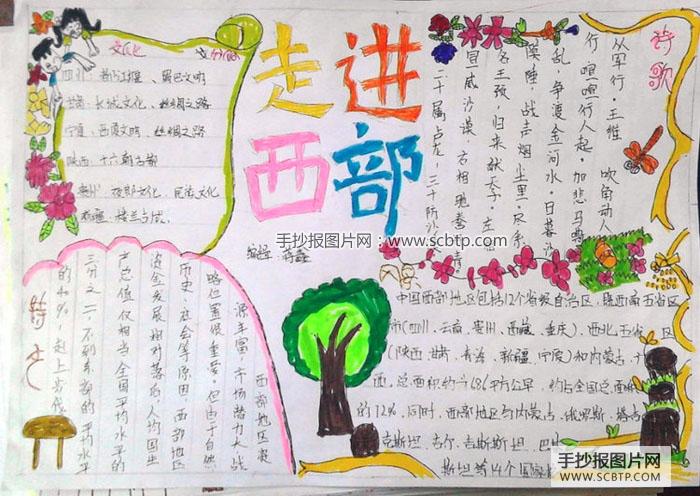 走进
西部
手抄报图片网：www.scbtp.com
文化
甘肃：长城文化、丝绸之路
宁夏：西夏文明、丝绸之路
陕西：十六朝古都
贵州：夜郎文化、民族文化
楼兰古城
诗歌
从军行·王维 吹角动人
行，喧喧行人起·加悲马
乱，争渡金河水·日暮沙
漠陲，战声烟尘里·尽系
名王颈，归来献天子·左
冒威沙漠，右相
二十属卢龙，三十防沙
中国西部地区包括12个省级自治区，西南五省区
市（四川、云南、贵州、西藏、重庆）、西北五省区
（陕西、甘肃、青海、新疆、宁夏）和内蒙古、
西，总面积约 686万平方公里，约占全国总面
的12%，同时，西部地区与内蒙古、俄罗斯、塔吉
克斯坦、吉尔吉斯斯坦、巴
斯坦等14个国家
西部地区
源丰富，市场潜力大，战
略位置很重要。但由于自然
历史、社会等原因，西部地区
发展相对落后，人均国生
产总值仅相当全国平均水平的
三分之二，不到东部的平均水平
的40%，赶上步伐
特
手抄报图片网
WWW.SCBTP.COM